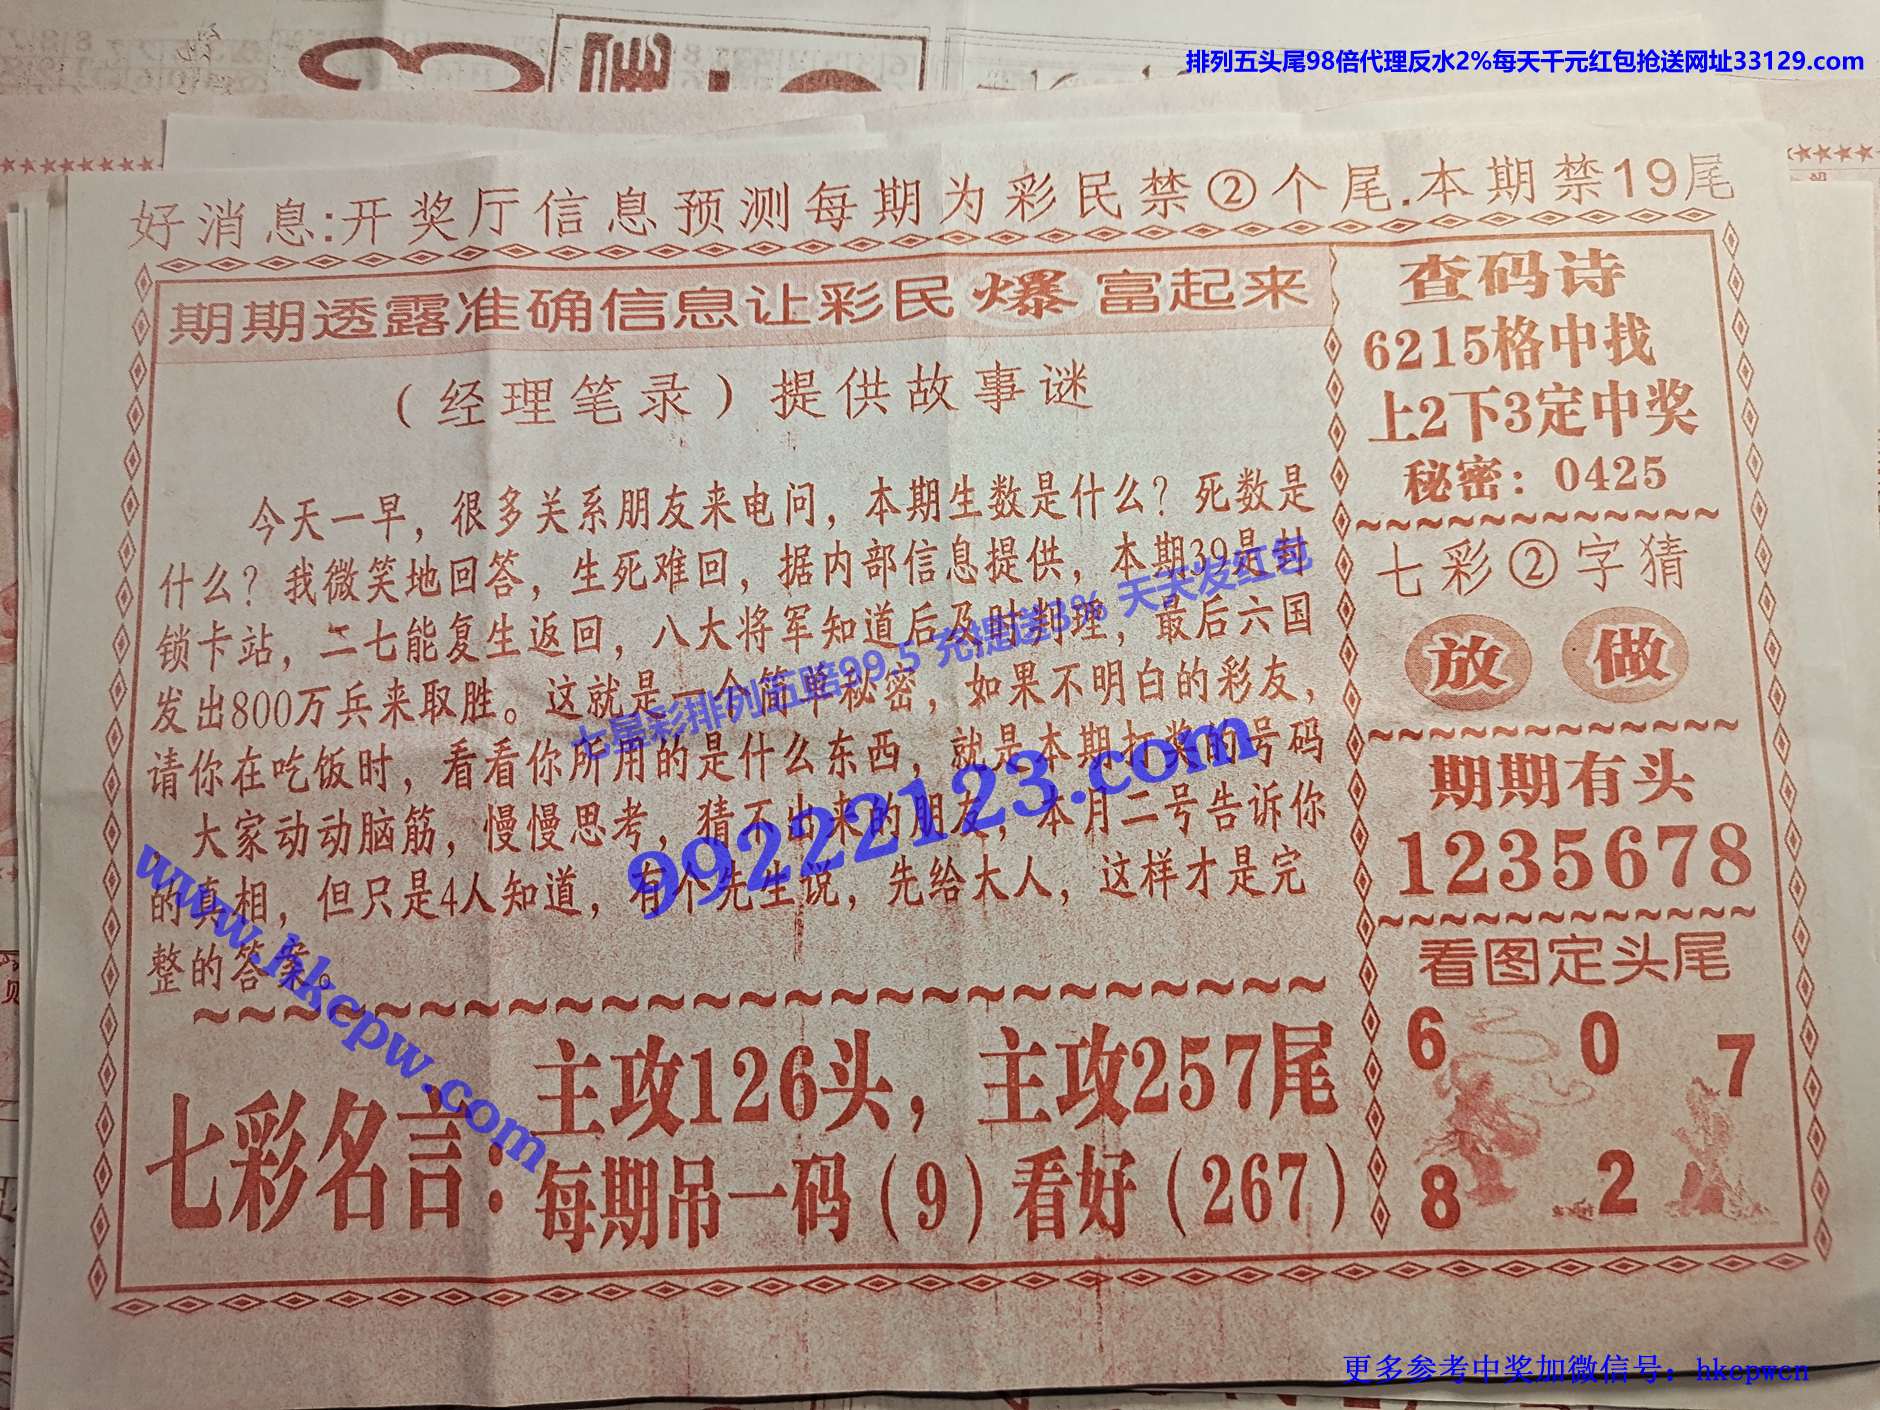 排列五头尾98倍代理反水2%每天千元红包抢送网址33129.com
好消息:开奖厅信息预测每期为彩民禁②个尾.本期禁19尾
期期透露准确信息让彩民爆富起来
（经理笔录）提供故事谜
今天一早，很多关系朋友来电问，本期生数是什么？死数是
什么？我微笑地回答，生死难回，据内部信息提供，本期39是封
锁卡站，二七能复生返回，八大将军知道后及时判理，最后六国
发出800万兵来取胜。这就是一个简单秘密，如果不明白的彩友，
请你在吃饭时，看看你所用的是什么东西，就是本期打奖的号码
，大家动动脑筋，慢慢思考，猜不出来的朋友，本月二号告诉你
的真相，但只是4人知道，有个先生说，先给大人，这样才是完
整的答案。
七彩名言：
主攻126头，主攻257尾
每期吊一码（9）看好（267）
查码诗
6215格中找
上2下3定中奖
秘密：0425
七彩②字猜
放 做
期期有头
1235678
看图定头尾
6 0 7
8 2
七星彩排列五赔99.5 充提送3% 天天发红包
99222123.com
www.hkcpw.com
更多参考中奖加微信号：hkcpwcn